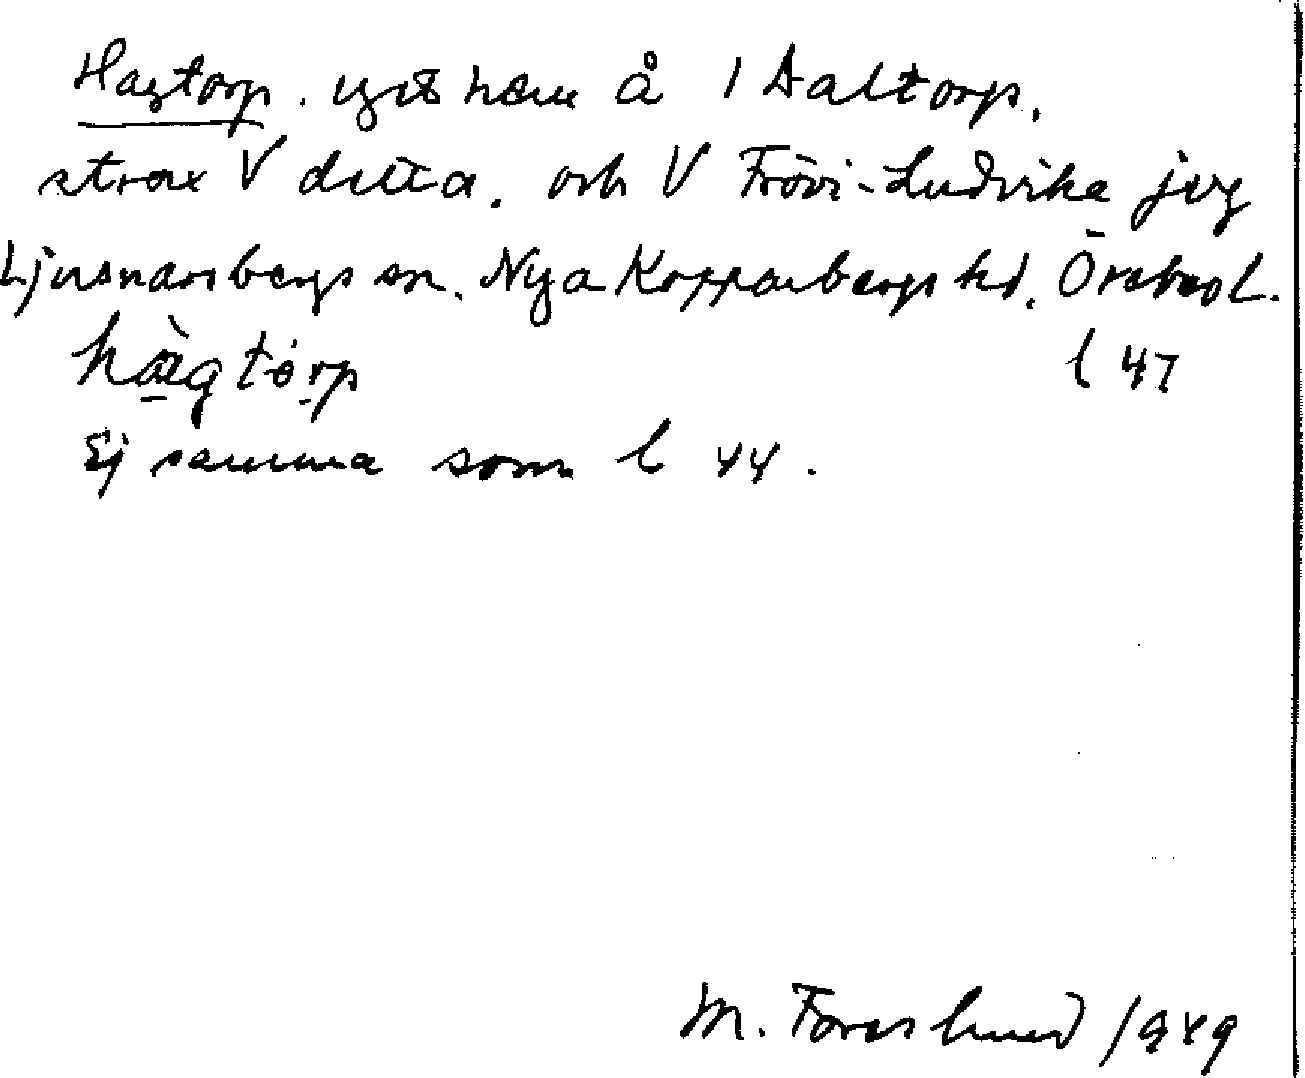 Hagtorp. lght herre å 1 Daltorp,
strax V detta, och V Frövi-Ludvika jvg
Ljusnarsbergs sn. Nya Kopparbergs hd. Örebro L.
hàgtórp l 47
Ej samma som l 44.
M. Forslund 1949